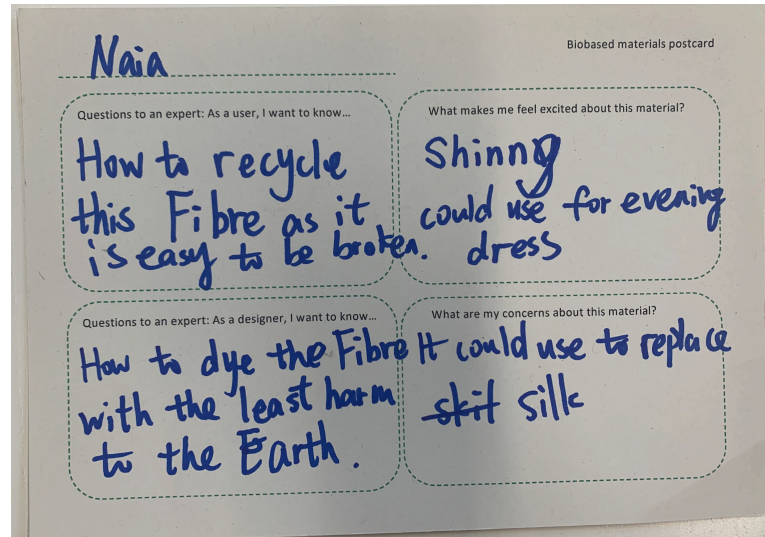 Naia
Biobased materials postcard
Questions to an expert: As a user, I want to know...
How to recycle
this Fibre as it
is easy to be broken.
What makes me feel excited about this material?
Shinny
could use for evening
dress
Questions to an expert: As a designer, I want to know...
How to dye the Fibre
with the least harm
to the Earth.
What are my concerns about this material?
It could use to replace
skit silk